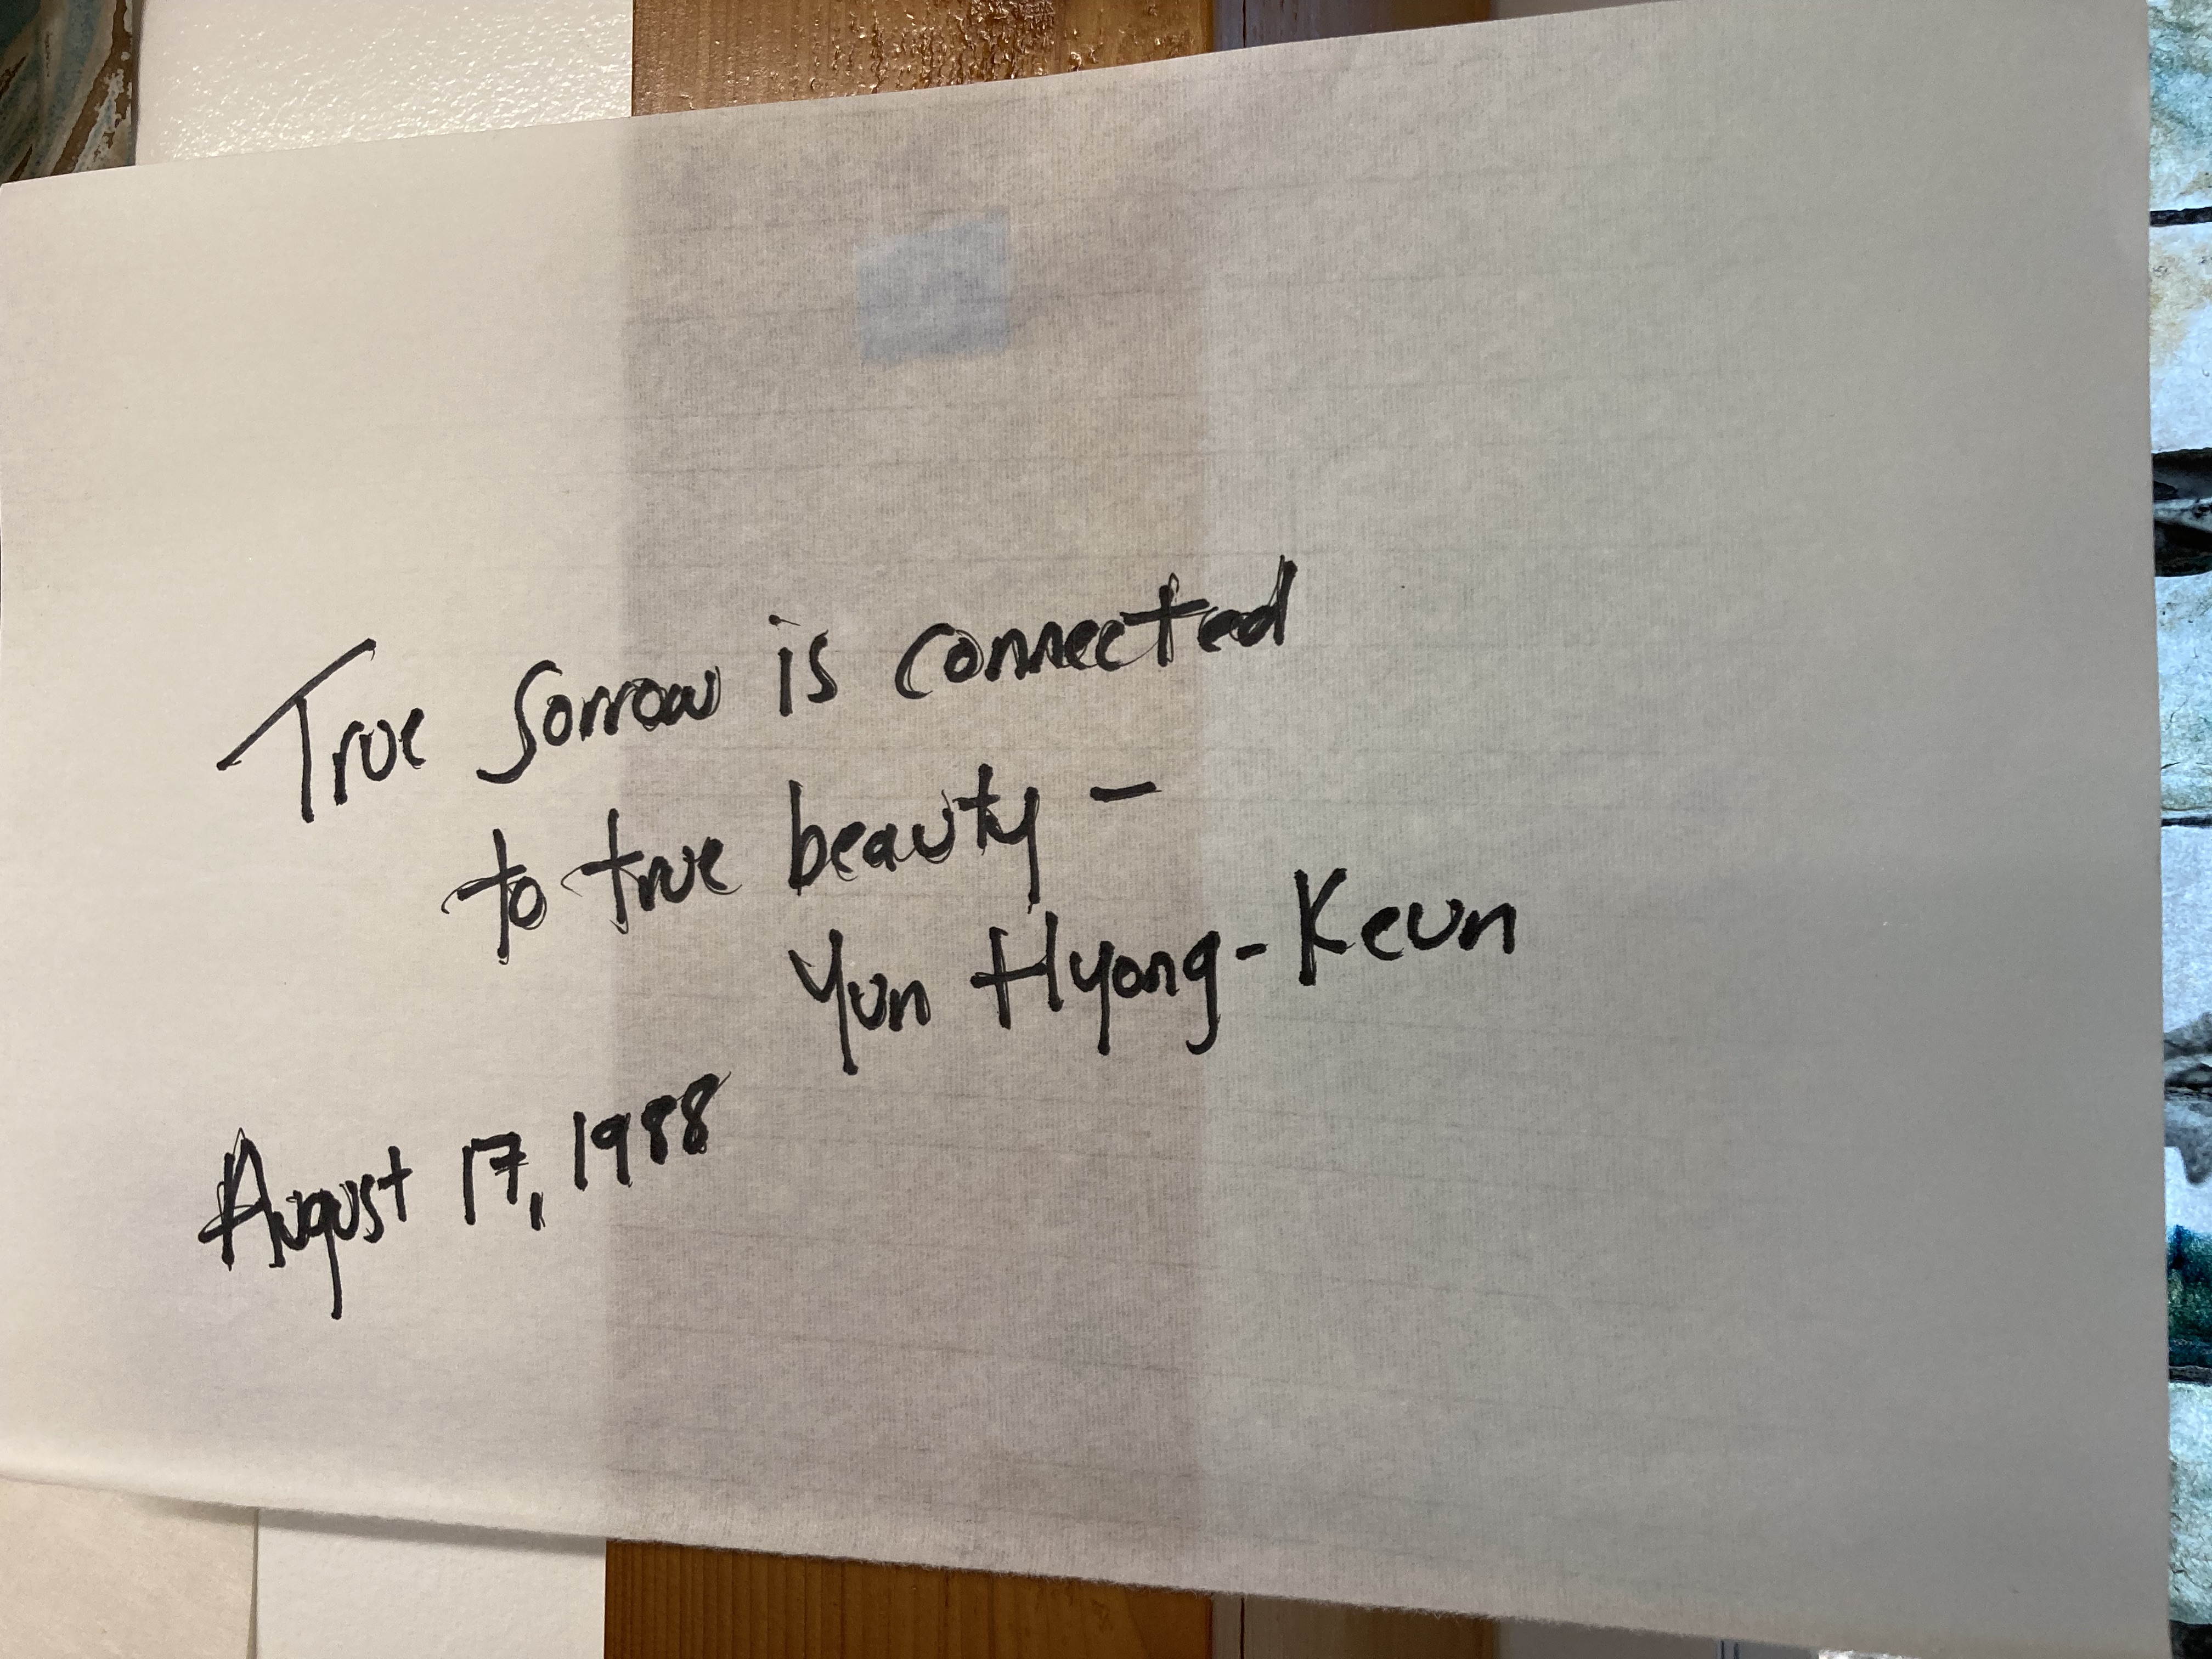 True Sorrow is connected
to true beauty -
Yun Hyong-Keun
August 17, 1988